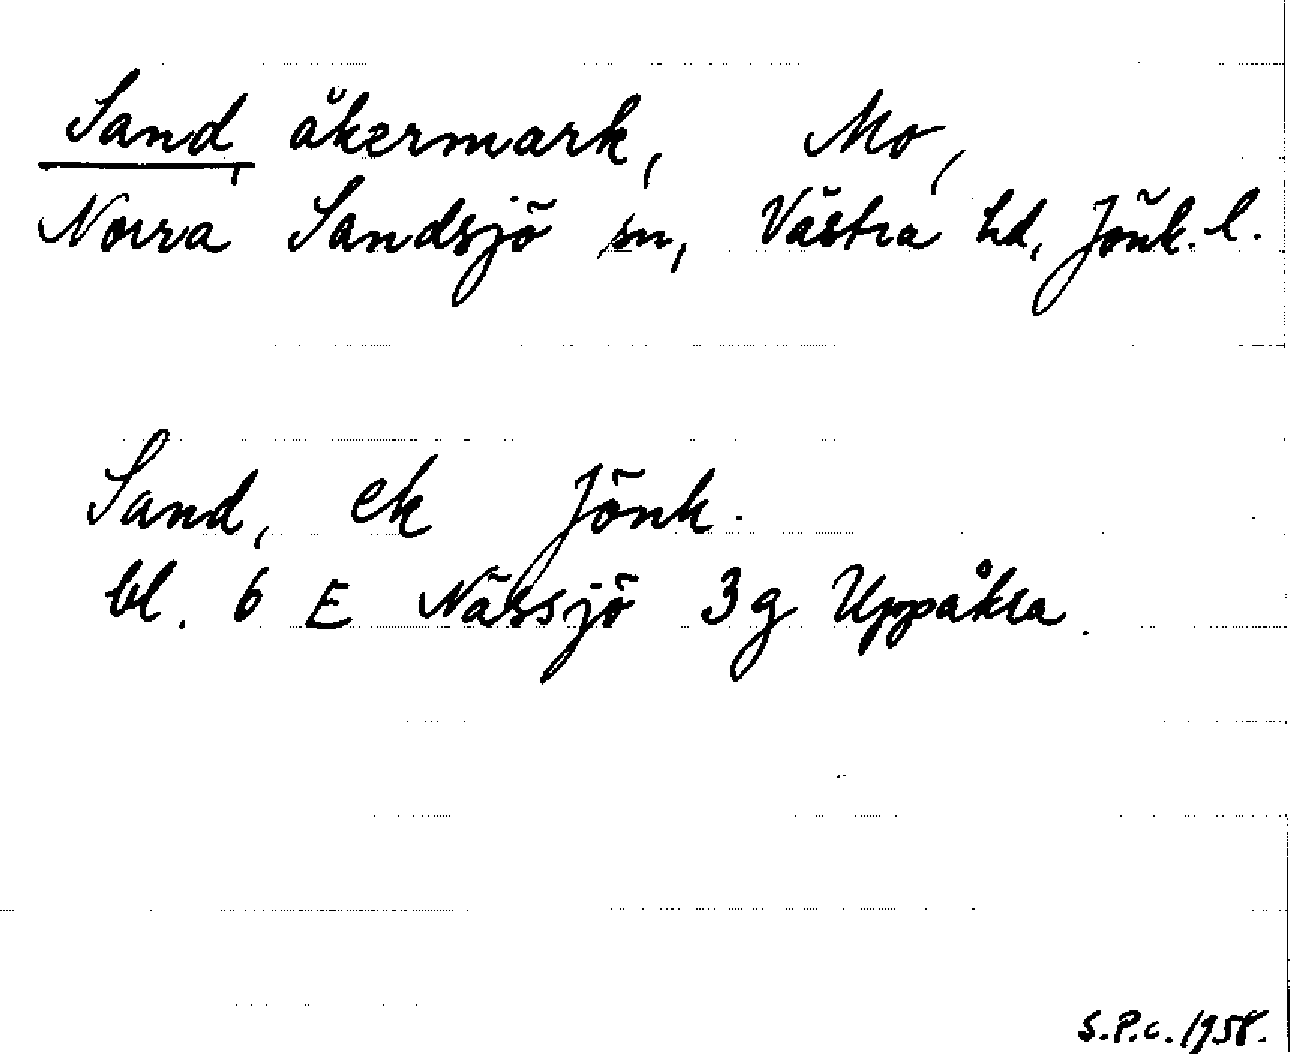 Sand, åkermark, Mo,
Norra Sandsjö sn, Västra hd, Jönk. l.
Sand, ek Jönk.
bl. 6 E Nässjö 3g Uppåkra.
S.P.C. 1958.